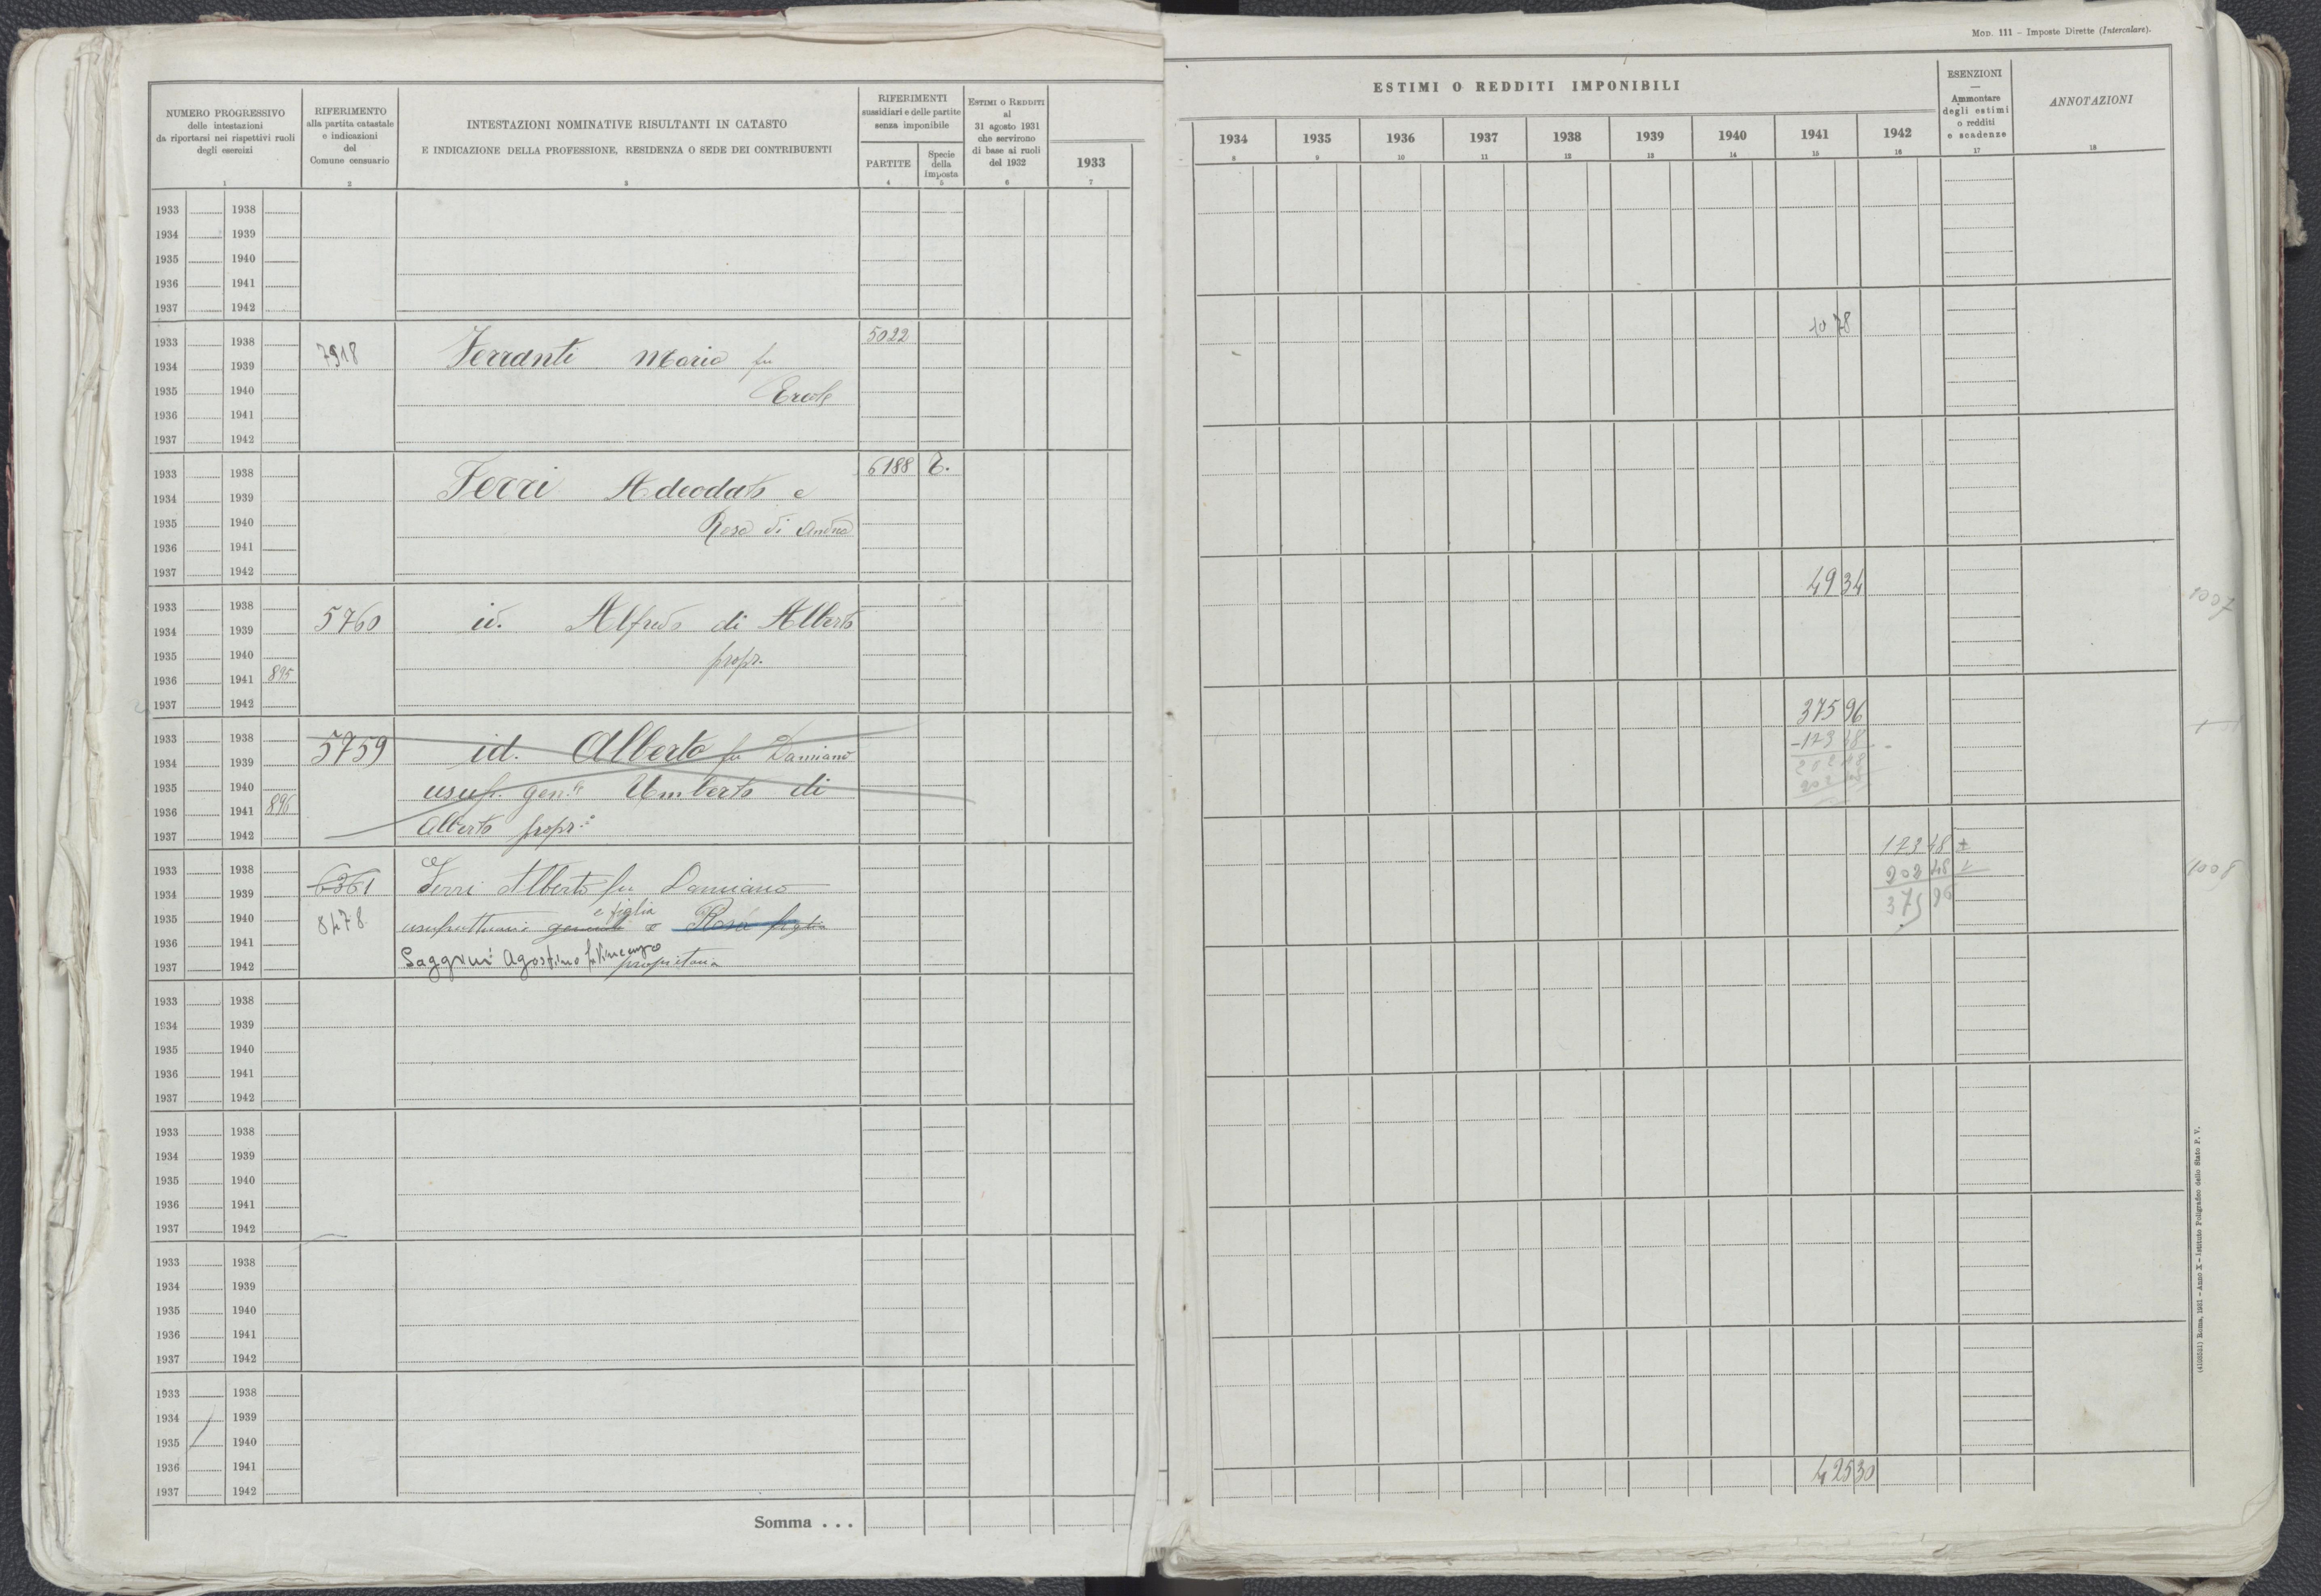 MOD. 111 – Imposte Dirette (Intercalare).
NUMERO PROGRESSIVO
delle intestazioni
da riportarsi nei rispettivi ruoli
degli esercizi
1
RIFERIMENTO
alla partita catastale
e indicazioni
del
Comune censuario
2
INTESTAZIONI NOMINATIVE RISULTANTI IN CATASTO
E INDICAZIONE DELLA PROFESSIONE, RESIDENZA O SEDE DEI CONTRIBUENTI
3
RIFERIMENTI
sussidiari e delle partite
senza imponibile
PARTITE
4
Specie
della
imposta
5
ESTIMI O REDDITI
al
31 agosto 1931
che servirono
di base ai ruoli
del 1932
6
1933
7
ESTIMI O REDDITI IMPONIBILI
1934 1935 1936 1937 1938 1939 1940 1941 1942
8 9 10 11 12 13 14 15 16
ESENZIONI
—
Ammontare
degli estimi
o redditi
e scadenze
17
ANNOTAZIONI
18
1933 1938
1934 1939
1935 1940
1936 1941
1937 1942
1933 1938 5022 10 78
1934 1939 7918 Ferranti Maria fu
1935 1940 Ercole
1936 1941
1937 1942
1933 1938 6188 T.
1934 1939 Ferri Adeodato e
1935 1940 Rosa di Andrea
1936 1941
1937 1942
1933 1938 49 34
1934 1939 5760 id. Alfredo di Alberto
1935 1940 propr.
1936 1941 895
1937 1942
1933 1938 375 96
1934 1939 5759 id. Alberto fu Damiano
1935 1940 usuf. gen.le Umberto di
1936 1941 896
1937 1942 Alberto propr.
1933 1938 173 48
1934 1939 6361 Ferri Alberto fu Damiano 202 48
1935 1940 8478 usufruttuario generale e figlia Rosa figlia 375 96
1936 1941
1937 1942 Saggini Agostino fu Vincenzo proprietaria
1008
1933 1938
1934 1939
1935 1940
1936 1941
1937 1942
1933 1938
1934 1939
1935 1940
1936 1941
1937 1942
1933 1938
1934 1939
1935 1940
1936 1941
1937 1942
1933 1938
1934 1939
1935 1940
1936 1941
1937 1942
Somma . . .
425 30
(4102521) Roma, 1931 – Anno X – Istituto Poligrafico dello Stato P. V.